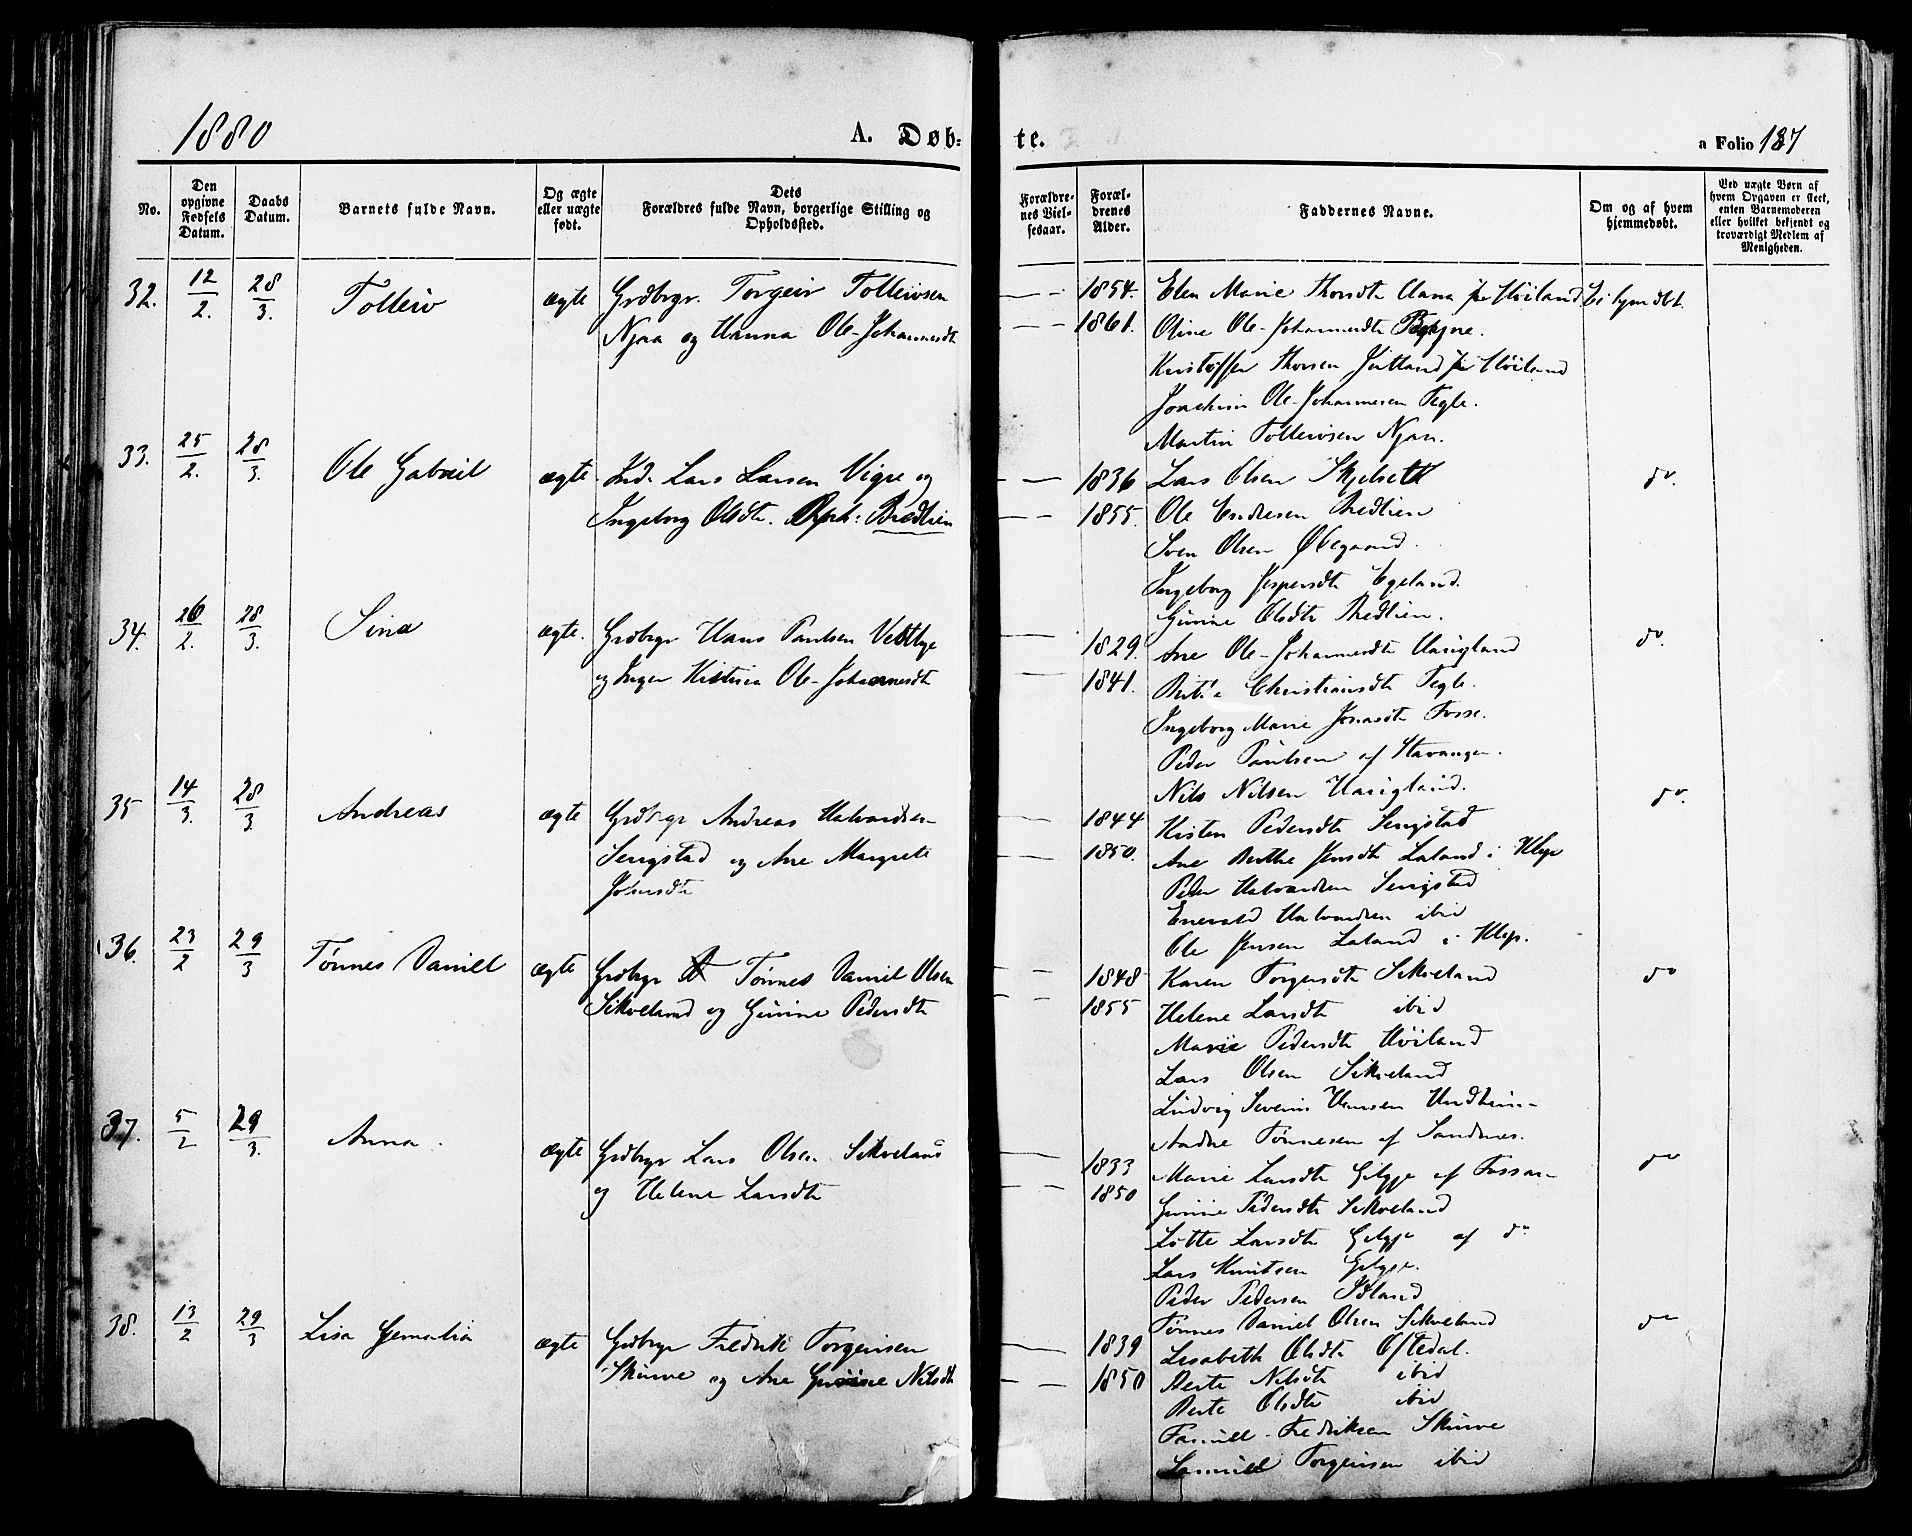 1880
A. Døb-
te.
a Folio 187
No.
Den opgivne Fødsels Datum.
Daabs Datum.
Barnets fulde Navn.
Og ægte eller uægte født.
Dets Forældres fulde Navn, borgerlige Stilling og Opholdssted.
Forældrenes Vielsesaar.
Forældrenes Alder.
Faddernes Navne.
Om og af hvem hjemmedøbt.
Ved uægte Børn af hvem Opgaven er skeet, enten Barnemoderen eller hvilket bekjendt og troværdigt Medlem af Menigheden.
32. 12/2. 28/3. Tolleiv ægte Grdbrgr. Torgeir Tolleivsen
Njaa og Hanna Ole-Johannesdt
1854. Elen Marie Thorsdt Hana Høiland Ei hjmdbt.
1861. Oline Ole-Johannesdt
Kristoffer Thorsen Høiland
Joachim Ole-Johannesen Tegle.
Martin Tolleivsen Njaa.
33. 25/2. 28/3. Ole Gabriel ægte Ind. Lars Larsen Vigre og
Ingeborg Olsdt. Oph: Bredlien
1836 Lars Olsen Skjelset do.
1855. Ole Endresen Bredlien
Sven Olsen Ødegaard.
Ingeborg Jespersdt Egeland.
Gurine Olsdt Bredlien.
34. 26/2. 28/3. Sina ægte. Grdbrgr Hans Paulsen Vestlye
og Inger Kistine Ole-Johannesdt
1829. Ane Ole-Johannesdt Haugland do.
1841. Berta Christiansdt Tegle.
Ingeborg Marie Jonasdt Fosse.
Peder Paulsen af Stavanger.
Nils Nilsen Haugland.
35 14/3. 28/3. Andreas ægte Grdbrgr Andreas Halvardsen
Serigstad og Ane Margrete
Jensdt
1844 Kisten Pedersdt Serigstad do.
1850. Ane Berthe Jensdt Laland i Klep
Peder Halvardsen Serigstad
Enevald Halvardsen ibid
Ole Jensen Laland i Klep.
36. 23/2 29/3 Tønnes Daniel ægte Grdbrgr Tønnes Daniel Olsen
Sikveland og Gurine Pedersdt
1848 Karen Torgersdt Sikveland do
1855 Helene Larsdt ibid
Marie Pedersdt Høiland
Lars Olsen Sikveland
Ludvig Severin Hansen Undheim
Andre Tønnesen af Sandnes.
37. 5/2 29/3. Anna. ægte Grdbrgr Lars Olsen Sikveland
og Helene Larsdt
1833 Marie Larsdt Gilgje af Fossan do
1850 Gurine Pedersdt Sikveland
Lotte Larsdt Gilgje af do
Lars Knutsen Gilgje.
Peder Pedersen
Tønnes Daniel Olsen Sikveland
38. 13/2 29/3 Lisa Gemalia ægte Grdbrgr Fredrik Torgersen
Skurve og Ane Gurine Nilsdt
1839 Lisabeth Olsdt Oftedal. do
1850 Berte Nilsdt ibid
Berte Olsdt ibid
Fredriksen Skurve
Samuel Torgersen ibid